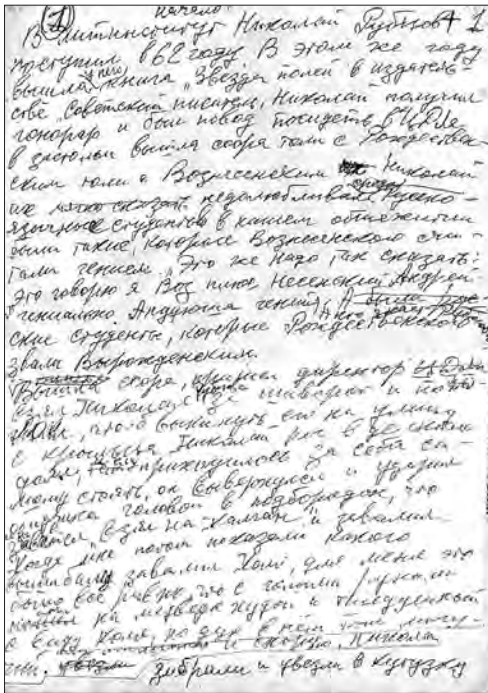 1 начало:
В Литинститут Николай Рубцов + 1
поступил в 62 году. В этом же году
вышла у него книга „Звезда полей" в издатель-
стве „Советский писатель, Николай получил
гонорар и был повод посидеть в ЦДЛе
в застольи вышла ссора то ли с Рождествен-
ским то ли с Вознесенским Николай
их мягко сказать недолюбливал, среди
язычных студентов в нашем общежитии
были такие, которые Вознесенского счи-
тали гением. „Это же надо так сказать:
Это говорю я Воз плюс Несенский Андрей
гениально Андрюша гений, А
ские студенты, которые Рождественского
звали Вырожденским.
Вышла ссора, пришёл директор ЦДЛ
взял Николая за шиворот и
чтоб выкинуть его на улицу
с крыльца Николай рос в детском
доме, приходилось за себя са-
мому стоять, он вывернулся и ударил
головой в подбородок, что
„взял на калган" и завалил
Когда мне потом показали какого
вышибалу завалил Коля, для меня это
было всё равно, что с голыми руками
на медведя худой и тщедушный
с виду Коля, но дух в нём
и Николая
забрали и увезли в кутузку